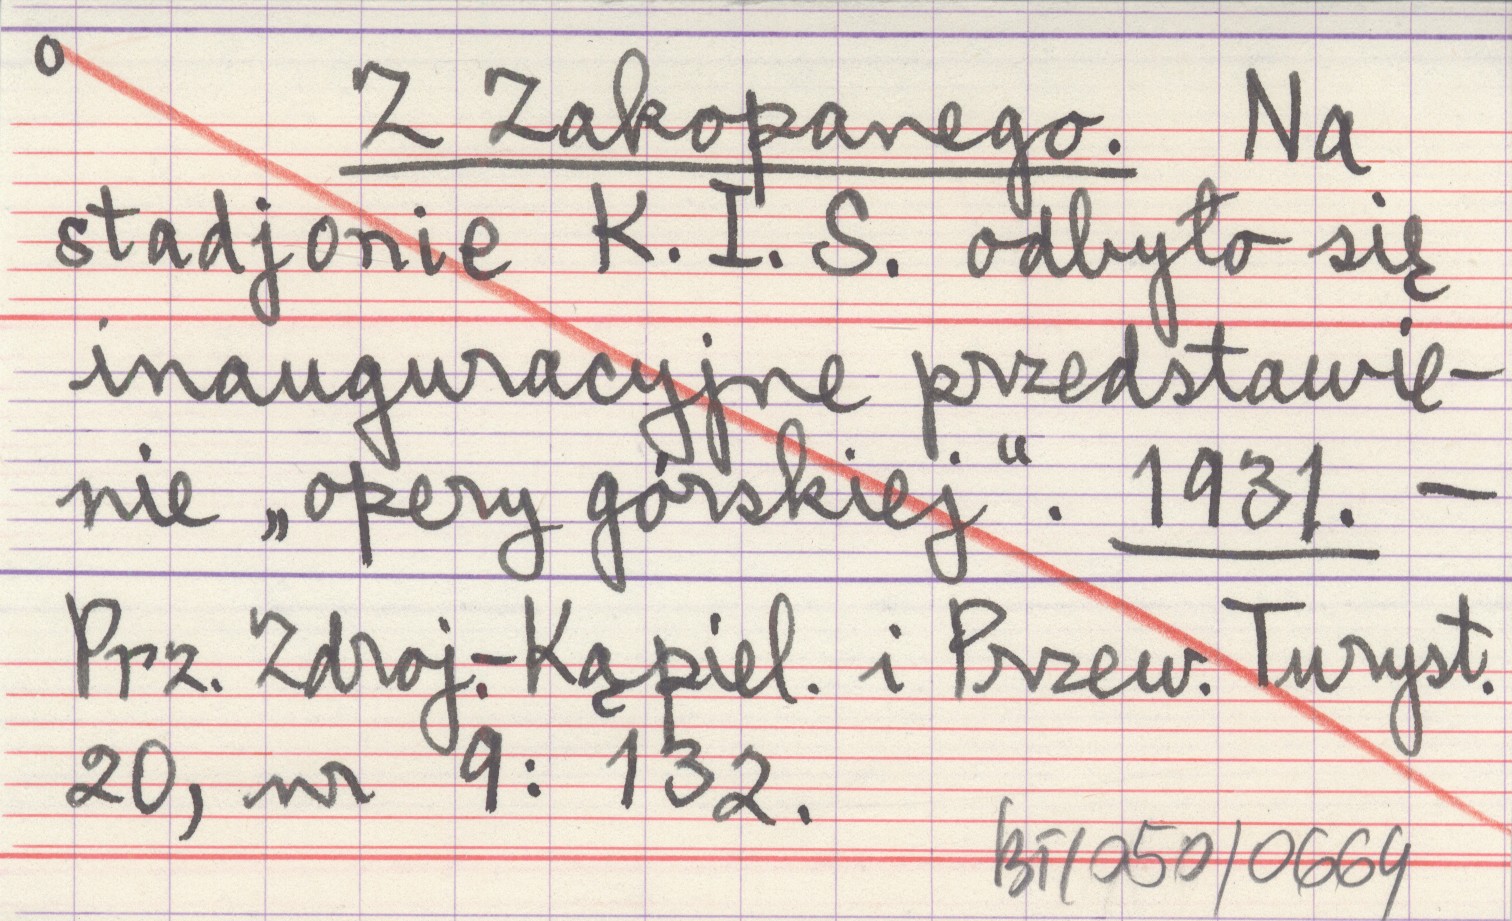 o
Z Zakopanego. Na
stadjonie K.I.S. odbyło się
inauguracyjne przedstawie-
nie „opery górskiej“. 1931. —
Prz. Zdroj.-Kąpiel. i Przew. Turyst.
20, nr 9: 132.
BT/050/0664